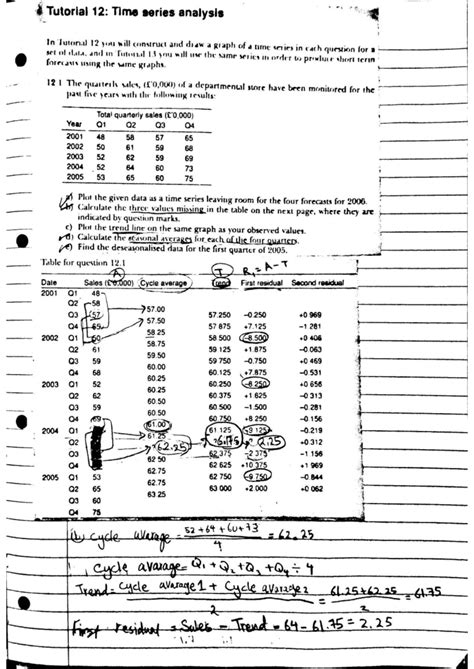 Tutorial 12: Time series analysis
In Tutorial 12 you will construct and draw a graph of a time series in each question for a
set of data, and in Tutorial 13 you will use the same series in order to produce short term
forecasts using the same graphs.
12.1 The quarterly sales, (£'0,000) of a departmental store have been monitored for the
past five years with the following results:
Total quarterly sales (£'0,000)
Year Q1 Q2 Q3 Q4
2001 48 58 57 65
2002 50 61 59 68
2003 52 62 59 69
2004 52 64 60 73
2005 53 65 60 75
a) Plot the given data as a time series leaving room for the four forecasts for 2006.
b) Calculate the three values missing in the table on the next page, where they are
indicated by question marks.
c) Plot the trend line on the same graph as your observed values.
d) Calculate the seasonal averages for each of the four quarters.
e) Find the deseasonalised data for the first quarter of 2005.
Table for question 12.1
(A) (T) R1 = A - T
Date Sales (£'0,000) Cycle average Trend First residual Second residual
2001 Q1 48
Q2 58
57.00
Q3 57 57.250 -0.250 +0.969
57.50
Q4 65 57 875 +7.125 -1.281
58.25
2002 Q1 50 58.500 -8.500 +0 406
58.75
Q2 61 59 125 +1.875 -0.063
59.50
Q3 59 59 750 -0.750 +0.469
60.00
Q4 68 60.125 +7.875 -0.531
60.25
2003 Q1 52 60.250 -8 250 +0 656
60.25
Q2 62 60 375 +1 625 -0.313
60.50
Q3 59 60.500 -1.500 -0.281
60.50
Q4 69 60 750 +8 250 -0.156
61.00
2004 Q1 61.125 -9 125 -0.219
61.25
Q2 61.75 2.25 +0 312
62.25
Q3 62 375 -2 375 -1.156
62 50
Q4 62 625 +10 375 +1 969
62.75
2005 Q1 53 62 750 -9 750 -0.844
62.75
Q2 65 63 000 +2 000 +0 062
63 25
Q3 60
Q4 75
b) Cycle average = 52+64+60+73 / 4 = 62.25
Cycle avarage = Q1 + Q2 + Q3 + Q4 ÷ 4
Trend = Cycle avarage 1 + Cycle avarage 2 / 2 = 61.25+62.25 / 2 = 61.75
First residual = Sales - Trend = 64 - 61.75 = 2.25